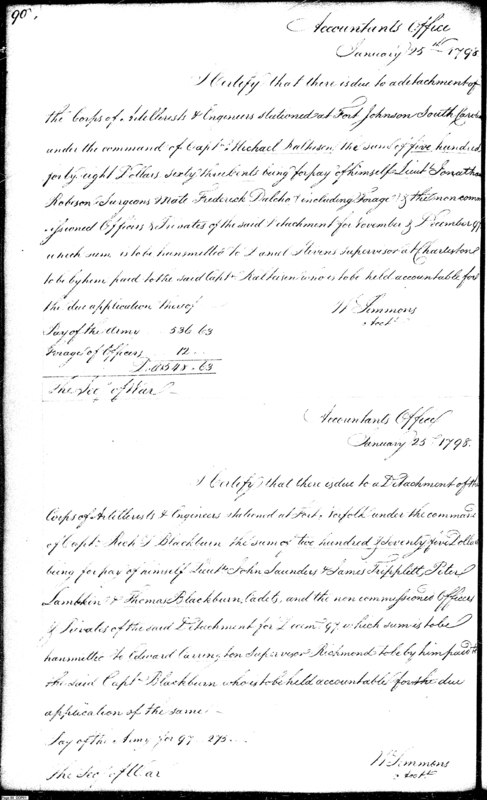 90.
Accountants Office
January 25th 1798
I Certify that there is due to a detachment of
the Corps of Artillerists & Engineers stationed at Fort Johnson South Carolin
under the command of Captn Michael Kalteisen the sum of five hundred
forty eight Dollars sixty three cents being for pay of himself Lieut Jonathan
Robeson Surgeons Mate Frederick Dalcho (including Forage) & the non comm
issioned Officers & Privates of the said Detachment for November & December 97
which sum is to be transmitted to Daniel Stevens Supervisor at Charleston
to be by him paid to the said Captn Kalteisen who is to be held accountable for
the due application thereof
W Simmons
Acct
Pay of the Army 536 63
Forage of Officers 12 ..
D. 548.63
The Secy of War
Accountants Office
January 25th 1798.
I Certify that there is due to a Detachment of the
Corps of Artillerists & Engineers stationed at Fort Norfolk under the command
of Captn Richd S Blackburn the sum of two hundred & seventy five Dollars
being for pay of himself Lieuts John Saunders & James Tripplett, Peter
Lamkin & Thomas Blackburn, Cadets, and the non commissioned Officers
& Privates of the said Detachment for Decemr 97 which sum is to be
transmitted to Edward Carrington Supervisor Richmond to be by him paid to
the said Captn Blackburn who is to be held accountable for the due
application of the same
Pay of the Army for 97 275..
Wm Simmons
Acctt
The Secy of War